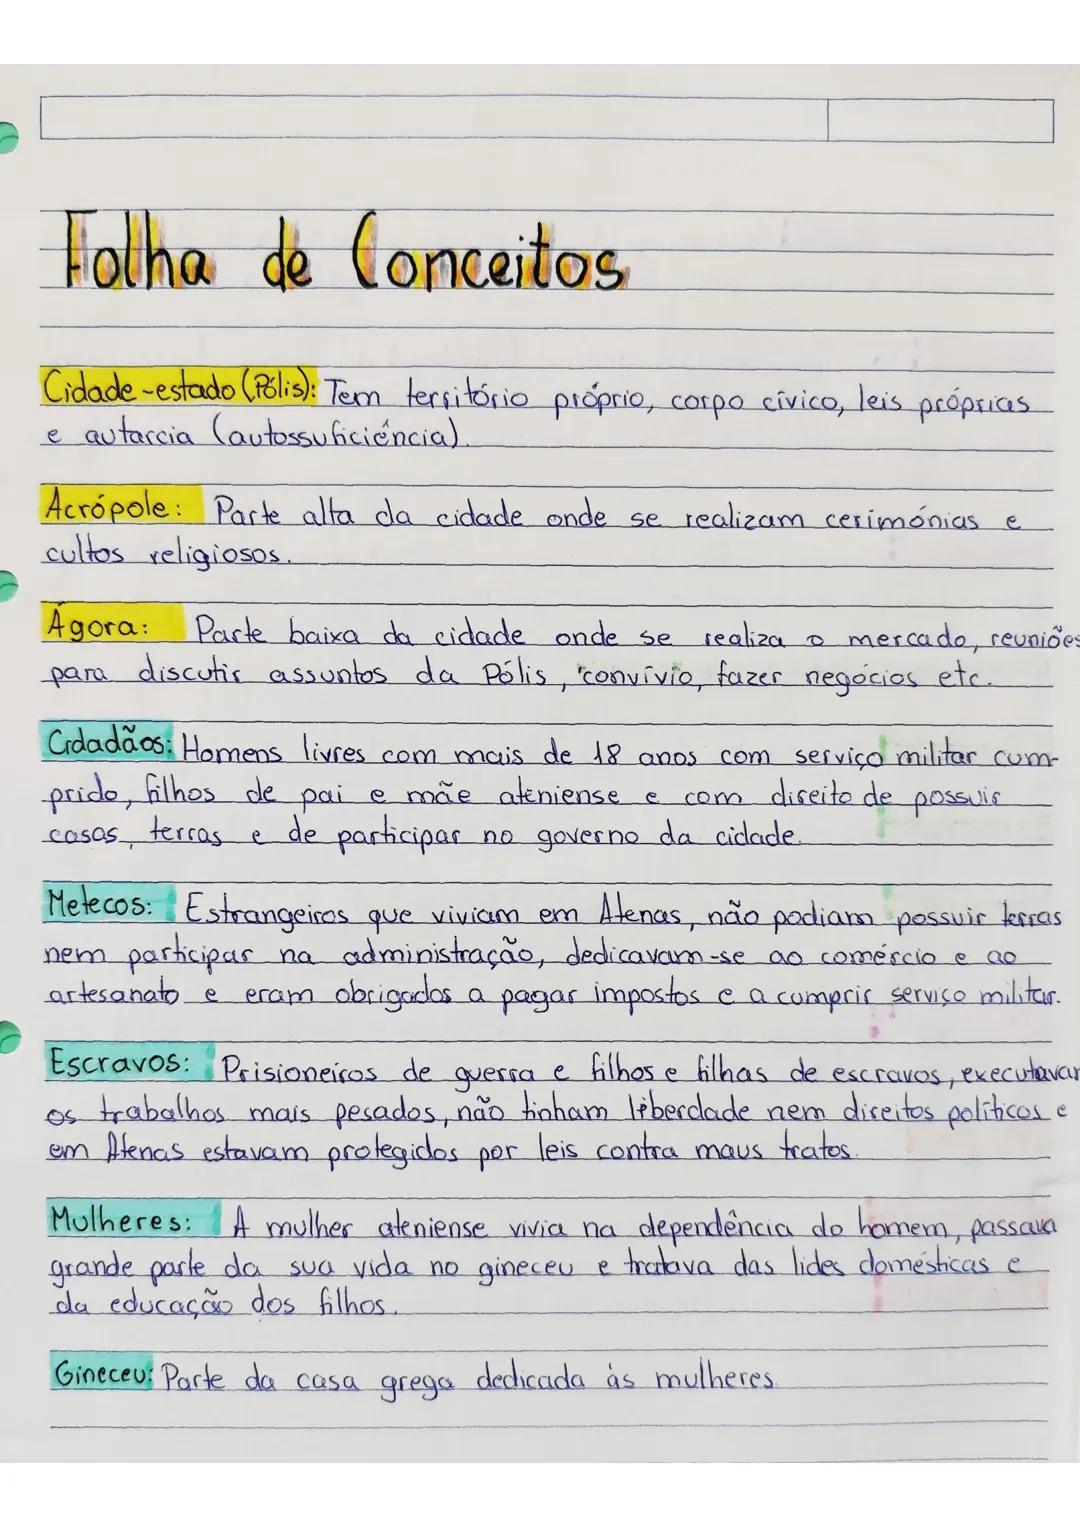 Folha de Conceitos
Cidade-estado (Pólis): Tem território próprio, corpo cívico, leis próprias
e autarcia (autossuficiência).
Acrópole: Parte alta da cidade onde se realizam cerimónias e
cultos religiosos.
Ágora: Parte baixa da cidade onde se realiza o mercado, reuniões
para discutir assuntos da Pólis, convívio, fazer negócios etc.
Cidadãos: Homens livres com mais de 18 anos com serviço militar cum-
prido, filhos de pai e mãe ateniense e com direito de possuir
casas, terras e de participar no governo da cidade.
Metecos: Estrangeiros que viviam em Atenas, não podiam possuir terras
nem participar na administração, dedicavam-se ao comércio e ao
artesanato e eram obrigados a pagar impostos e a cumprir serviço militar.
Escravos: Prisioneiros de guerra e filhos e filhas de escravos, executavam
os trabalhos mais pesados, não tinham liberdade nem direitos políticos e
em Atenas estavam protegidos por leis contra maus tratos.
Mulheres: A mulher ateniense vivia na dependência do homem, passava
grande parte da sua vida no gineceu e tratava das lides domésticas e
da educação dos filhos.
Gineceu: Parte da casa grega dedicada ás mulheres.